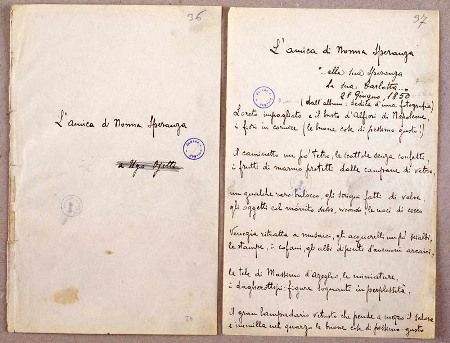 36
L'amica di Nonna Speranza
a Ugo Ojetti
37
L'amica di Nonna Speranza
"..alla sua Speranza
la sua Carlotta...
28 Giugno, 1850
(dall'album: dedica d'una fotografia)
Loreto impagliato e il busto d'Alfieri di Napoleone,
i fiori in cornice (le buone cose di pessimo gusto!)
Il caminetto un po' tetro, le scatole senza confetti,
i frutti di marmo protetti dalle campane di vetro,
un qualche raro balocco, gli scrigni fatti di valve,
gli oggetti col mònito salve, ricordo, le noci di cocco
Venezia ritratta a musaici, gli acquerelli un po' scialbi,
le stampe, i cofani, gli albi dipinti d'anemoni arcaici,
le tele di Massimo d'Azeglio, le miniature,
i dagherottipi: figure sognanti in perplessità,
il gran lampadario vetusto che pende a mezzo il salone
e immilla nel quarzo le buone cose di pessimo gusto